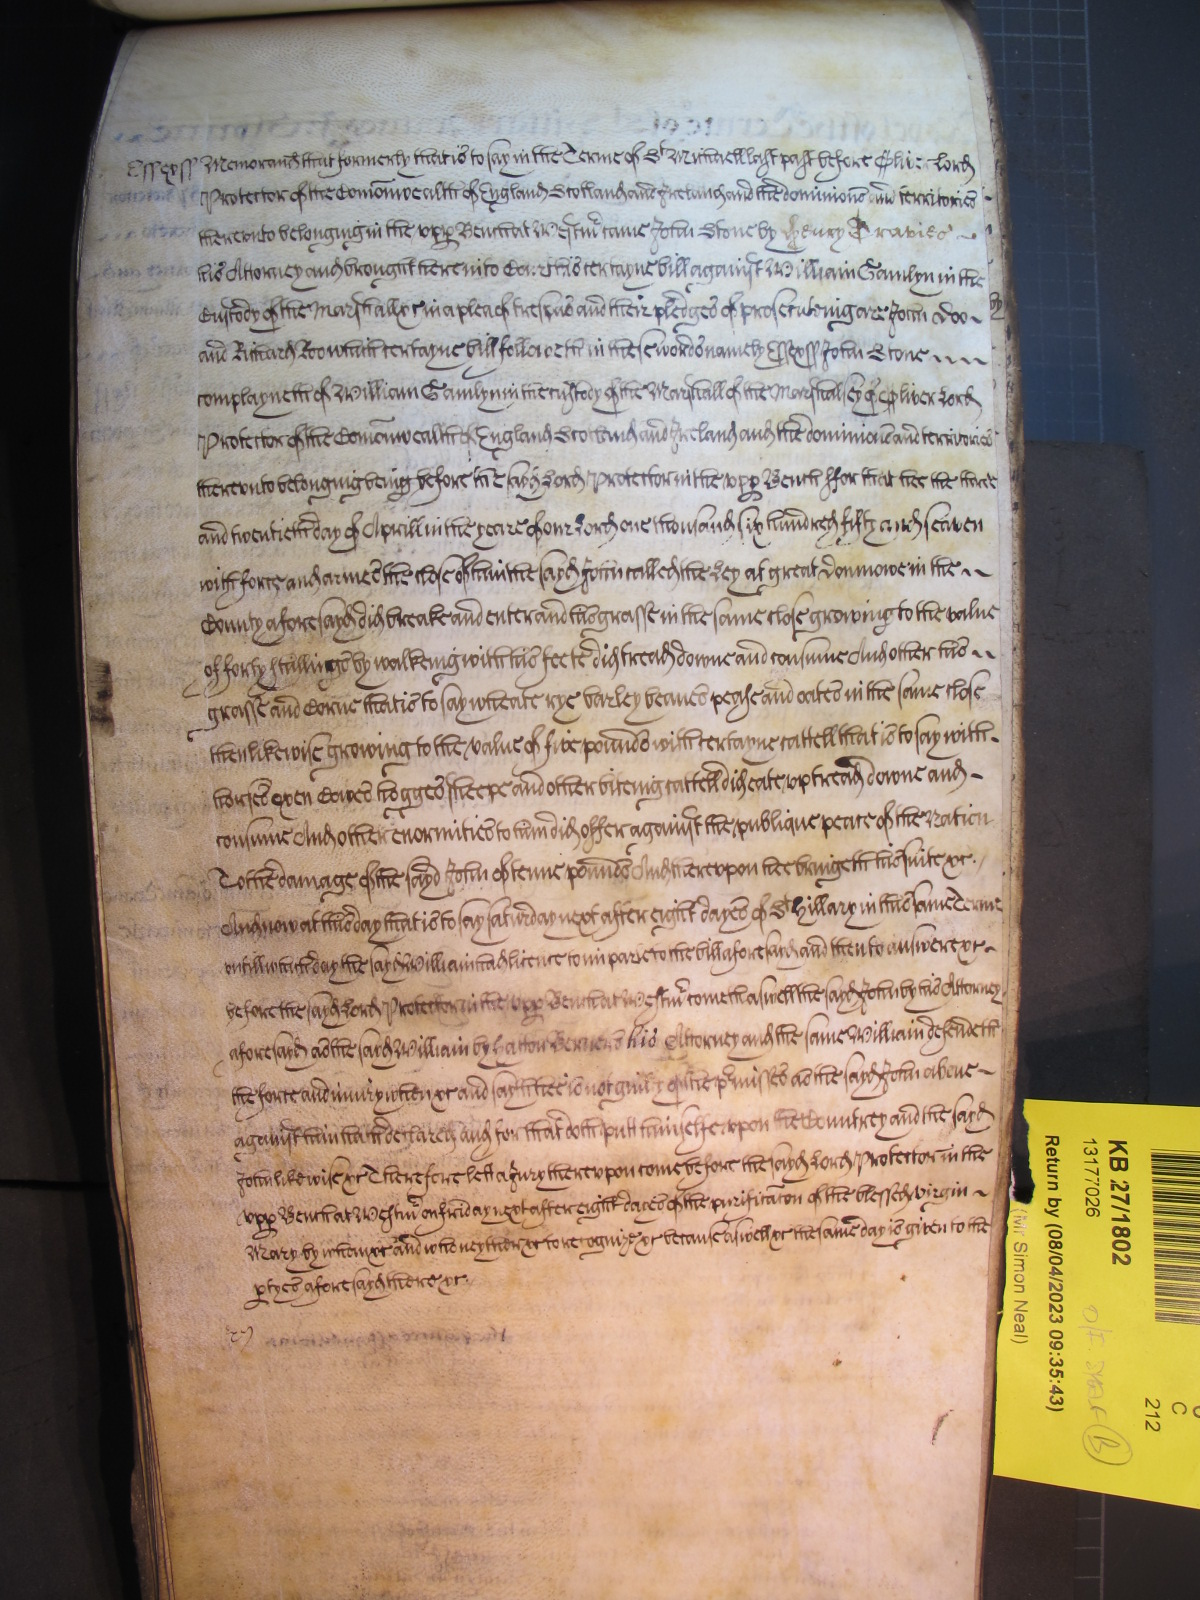 Essex ss Memorand that formerly that is to say in the Terme of St Michaell last past before Oliver Lord
Protector of the Comonwealth of England Scotland and Ireland and the dominions and territories
thereunto belonging in the upp Bench at Westmr came John Stone by Henry Travies
his Attorney and brought here into Court his certayne bill against William Gamlyn in the
Custody of the Marshall &c in a plea of trespas and their pledges of prosecuteing are John Doo
and Richard Roo which certayne bill followeth in these words namely Essex ss John Stone
complayneth of William Gamlyn in the custody of the Marshall of the Marshalsey of Oliver Lord
Protector of the Comonwealth of England Scotland and Ireland and the dominions and territories
thereunto belonging being before the sayd Lord Protector in the upp Bench ffor that hee the three
and twentieth day of Aprill in the yeare of our Lord one thousand six hundred fifty and seaven
with force and armes the close of him the sayd John called the Ley at great Donmowe in the
County aforesayd did breake and enter and his grasse in the same close growing to the value
of forty shillings by walkeing with his feete did tread downe and consume And other his
grasse and Corne that is to say wheate rye barley beanes pease and oates in the same close
then likewise growing to the value of five pounds with certayne cattell that is to say with
horses oxen Cowes hogges sheepe and other biteing cattell did eate up tread downe and
consume And other enormities to him did offer against the publique peace of the Nation
To the damage of the sayd John of tenne pounds And thereupon hee bringeth his suite &c.
And now at this day that is to say saturday next after eight dayes of St Hillary in this same Terme
untill which day the sayd William had licence to imparle to the bill aforesayd and then to answere &c
before the sayd Lord Protector in the upp Bench at Westmr cometh aswell the sayd John by his Attorney
aforesayd as the sayd William by Hatton Berners his Attorney and the same William defendeth
the force and iniury when &c and sayth hee is not guilty of the pmisses as the sayd John above
against him hath declared and for that doth putt himselfe upon the Countrey and the sayd
John likewise &c Therefore lett a Jury thereupon come before the sayd Lord Protector in the
upp Bench at Westmr on friday next after eight dayes of the purificacon of the blessed virgin
Mary by whom &c and who neyther &c to recognize &c because aswell &c the same day is given to the
ptyes aforesayd there &c.
KB 27/1802
13177026
Return by (08/04/2023 09:35:43)
(Mr Simon Neal)
C
212